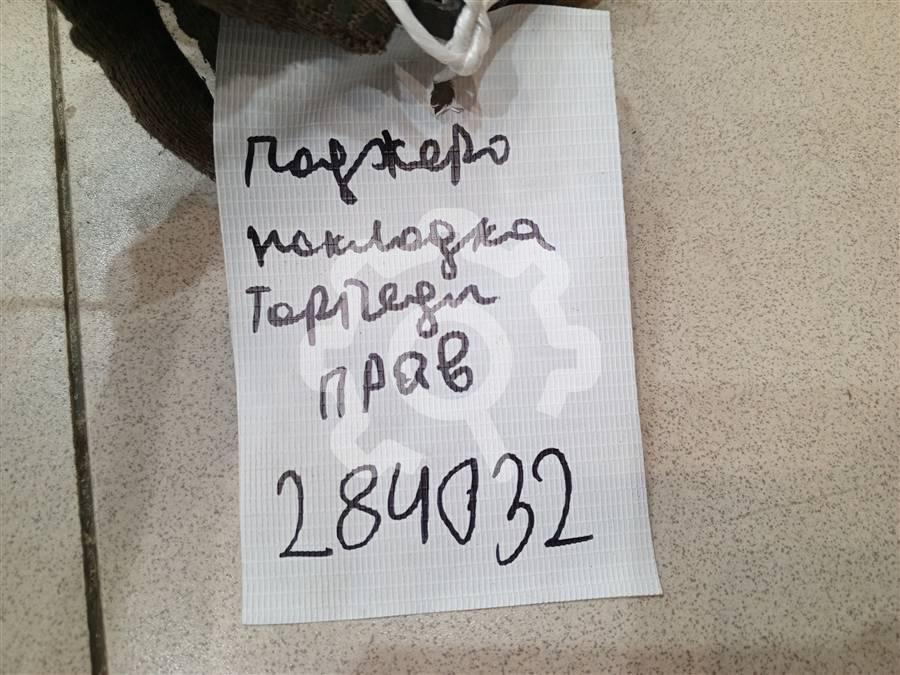 Паджеро
накладка
Торпеди
прав
284032